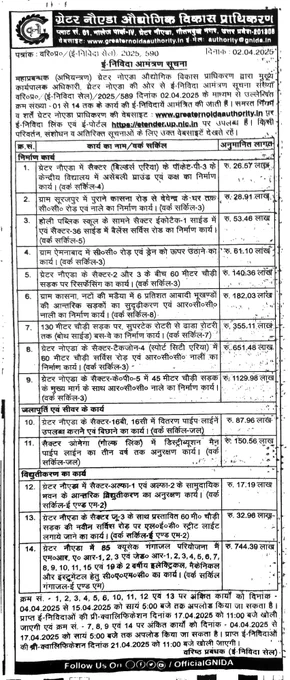 ग्रेटर नौएडा औद्योगिक विकास प्राधिकरण
प्लाट सं.-01, नालेज पार्क-IV, ग्रेटर नौएडा, गौतमबुद्ध नगर, उत्तर प्रदेश-201308
www.greaternoidaauthority.in ई मेल: authority@gnida.in
पत्रांक: वरि०प्र०/(ई-निविदा सेल)/2025/590 दिनांक: 02.04.2025
ई-निविदा आमंत्रण सूचना
महाप्रबन्धक (अभियन्त्रण) ग्रेटर नौएडा औद्योगिक विकास प्राधिकरण द्वारा मुख्य
कार्यपालक अधिकारी, ग्रेटर नौएडा की ओर से ई-निविदा आमंत्रण सूचना संख्या
वरि०प्र०/(ई-निविदा सेल)/2025/589 दिनांक 02.04.2025 के माध्यम से उल्लेखित
क्रम संख्या -01 से 14 तक के कार्य की ई-निविदायें आमंत्रित की जाती है। समस्त
शर्तें ग्रेटर नौएडा प्राधिकरण की वेबसाइट- www.greaternoidaauthority.in
ई-निविदा लिंक एवं ई-पोर्टल https://etender.up.nic.in पर उपलब्ध है। किसी
परिवर्तन, संशोधन व अतिरिक्त सूचनाओं के लिए उक्त वेबसाइटें देखते रहें।
क्र.सं. कार्य का नाम/वर्क सर्किल अनुमानित लागत
निर्माण कार्य
1. ग्रेटर नौएडा में सैक्टर (बिल्डर्स एरिया) के पॉकेट-पी-3 के रु. 26.57 लाख
केन्द्रीय विद्यालय में असेंबली ग्राउंड एवं कक्ष का निर्माण
कार्य। (वर्क सर्किल-4)
2. ग्राम सूरजपुर में पुराने कासना रोड़ से देवेन्द्र के घर तक रु. 28.91 लाख
सी०सी० रोड़ एवं नाले का निर्माण कार्य। (वर्क सर्किल-3)
3. होली पब्लिक स्कूल के सामने सैक्टर ईकोटैक-1 साईड में रु. 53.46 लाख
एवं सैक्टर-36 साईड में बैलेंस सर्विस रोड़ का निर्माण कार्य।
(वर्क सर्किल-5)
4. ग्राम ऐमनाबाद में सी०सी० रोड़ एवं ड्रेन को ऊपर उठाने का रु. 61.10 लाख
कार्य। (वर्क सर्किल-3)
5. ग्रेटर नौएडा के सैक्टर-2 और 3 के बीच 60 मीटर चौड़ी रु. 140.36 लाख
सड़क पर रिसर्फेसिंग का कार्य। (वर्क सर्किल-3)
6. ग्राम कासना, नटों की मडैया में 6 प्रतिशत आबादी भूखण्डों रु. 182.03 लाख
की आन्तरिक सड़कों का सुदृढ़ीकरण एवं आर०सी०सी०
नाली का निर्माण कार्य। (वर्क सर्किल-8)
7. 130 मीटर चौड़ी सड़क पर, सुपरटेक रोटरी से ढाढा रोटरी रु. 355.11 लाख
तक (बोथ साईड) बस-वे का निर्माण कार्य। (वर्क सर्किल-7)
8. ग्रेटर नौएडा के सैक्टर-टैकजोन-4 (स्पोर्ट सिटी एरिया) में रु. 651.48 लाख
60 मीटर चौड़ी सर्विस रोड़ एवं आर०सी०सी० नाली का
निर्माण कार्य। (वर्क सर्किल-3)
9. ग्रेटर नौएडा के सैक्टर-के०पी०-5 में 45 मीटर चौड़ी सड़क रु. 1129.98 लाख
के मुख्य मार्ग के साथ आर०सी०सी० नाले का निर्माण कार्य।
(वर्क सर्किल-3)
जलापूर्ति एवं सीवर के कार्य
10. ग्रेटर नौएडा के सैक्टर-16बी, 16सी में वितरण पाईप-लाईन रु. 87.96 लाख
उपलब्ध कराने एवं बिछाने का कार्य। (वर्क सर्किल-जल)
11. सैक्टर ओमेगा (गोल्फ लिंक) में डिस्ट्रीब्यूशन मैन रु. 150.56 लाख
पाईप लाईन का तीन वर्ष तक अनुरक्षण कार्य। (वर्क
सर्किल-जल)
विद्युतीकरण का कार्य
12. ग्रेटर नौएडा में सैक्टर-अल्फा-1 एवं अल्फा-2 के सामुदायिक रु. 17.19 लाख
भवन के आन्तरिक विद्युतीकरण का अनुरक्षण कार्य। (वर्क
सर्किल-ई एण्ड एम-2)
13. ग्रेटर नौएडा के सैक्टर ज्यू-3 के साथ प्रस्तावित 60 मी० चौड़ी रु. 32.96 लाख
सड़क की नवीन सर्विस रोड़ पर एल०ई०डी० स्ट्रीट लाईट
लगाये जाने का कार्य। (वर्क सर्किल-ई एण्ड एम-2)
14. ग्रेटर नौएडा में 85 क्यूसेक गंगाजल परियोजना में रु. 744.39 लाख
एम०आर०, ए आर-1, 2, 3 एवं जेड० आर-1, 2, 3, 4, 5, 6, 7,
8, 9, 10, 11, 15 एवं 19 के 2 वर्षीय इलैक्ट्रिकल, मैकेनिकल
और इंस्ट्रूमेंटल हेतु सी०ए०एम०सी० का कार्य। (वर्क सर्किल
गंगाजल-ई एण्ड एम)
क्रम सं. - 1, 2, 3, 4, 5, 6, 10, 11, 12 एवं 13 पर अंकित कार्यों को दिनांक
04.04.2025 से 15.04.2025 को सायं 5:00 बजे तक अपलोड किया जा सकता है।
प्राप्त ई-निविदाओं की प्री-क्वालिफिकेशन दिनांक 17.04.2025 को 11:00 बजे खोली
जाएगी एवं क्रम सं. - 7, 8, 9 एवं 14 पर अंकित कार्यों को दिनांक 04.04.2025 से
17.04.2025 को सायं 5:00 बजे तक अपलोड किया जा सकता है। प्राप्त ई-निविदाओं
की प्री-क्वालिफिकेशन दिनांक 21.04.2025 को 11:00 बजे खोली जाएगी।
वरिष्ठ प्रबन्धक (ई-निविदा सेल)
Follow Us On /OfficialGNIDA